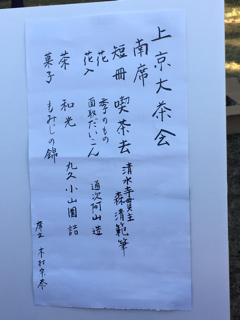 上京大茶会
南席
短冊 喫茶去 清水寺貫主 森清範筆
花 季のもの
花入 面取だいこん 道次阿山造
茶 和光 丸久小山園詰
菓子 もみじの錦
席主 木村宗